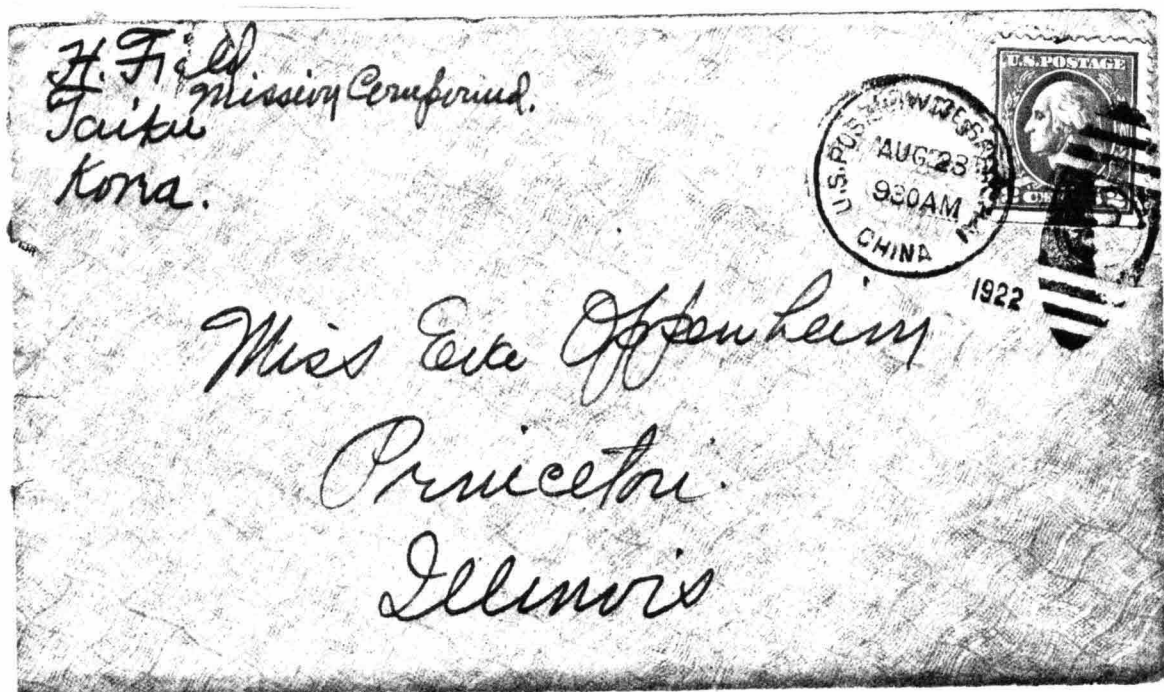 H. Field
Mission Compound.
Taiku
Korea.
U.S. POSTAL SERVICE SHANGHAI
AUG 28
930AM
CHINA
1922
U.S. POSTAGE
Miss Eva Oppenheim
Princeton
Illinois